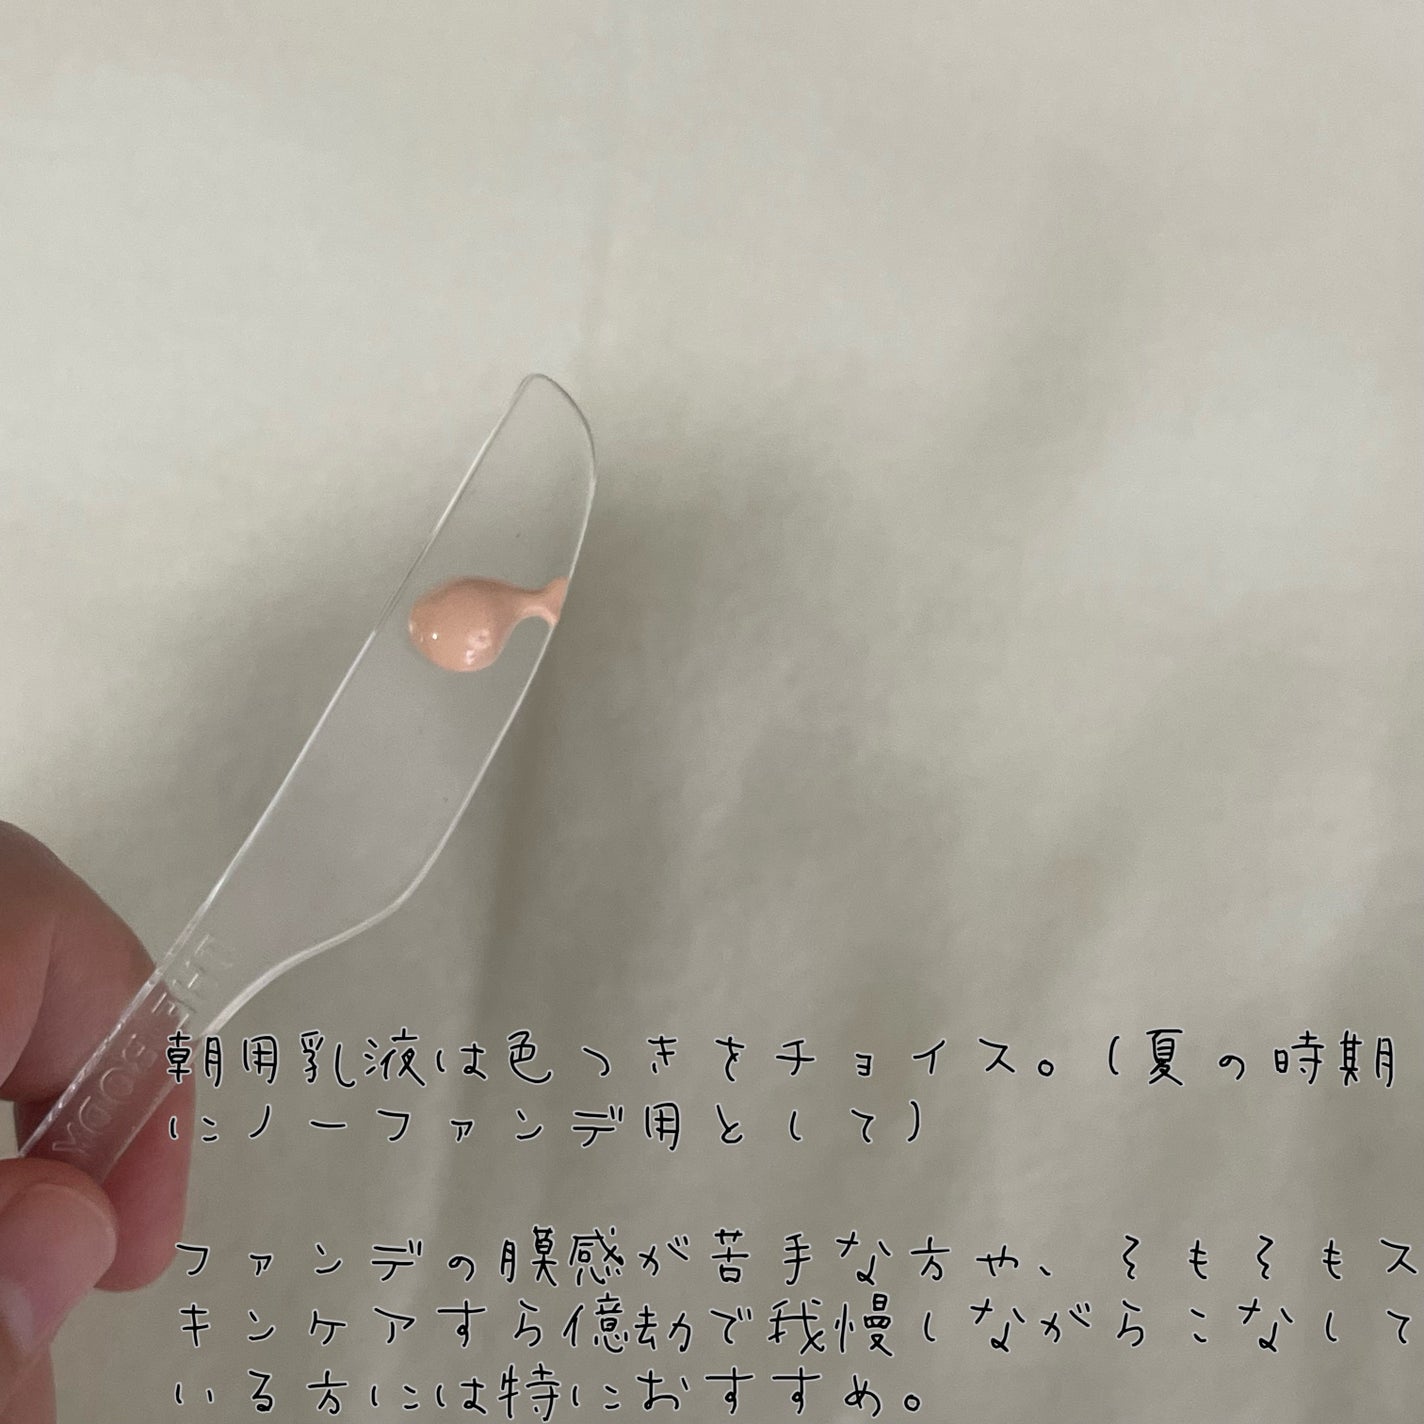 THE BODY
朝用乳液は色つきをチョイス。(夏の時期
にノーファンデ用として)
ファンデの膜感が苦手な方や、そもそもス
キンケアすら億劫で我慢しながらこなして
いる方には特におすすめ。